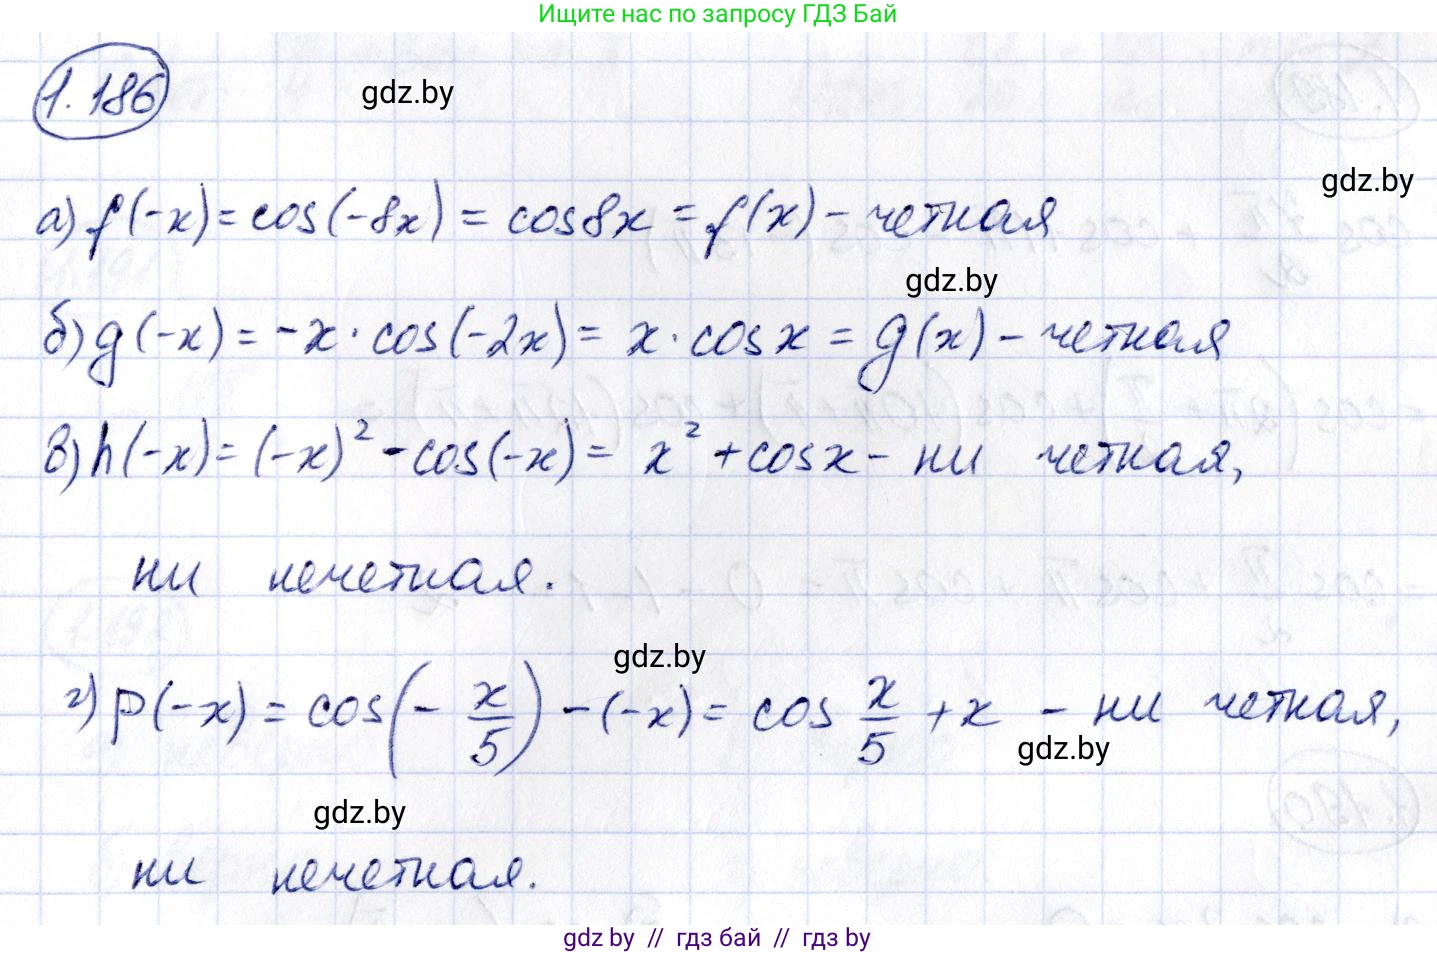 Ищите нас по запросу ГДЗ Бай
1.186
gdz.by
gdz.by
а) f(-x) = cos(-8x) = cos8x = f(x) - четная
gdz.by
б) g(-x) = -x · cos(-2x) = x · cosx = g(x) - четная
в) h(-x) = (-x)² - cos(-x) = x² + cosx - ни четная,
ни нечетная.
gdz.by
г) p(-x) = cos(-x/5) - (-x) = cos x/5 + x - ни четная,
gdz.by
gdz.by
ни нечетная.
gdz by // гдз бай // гдз by